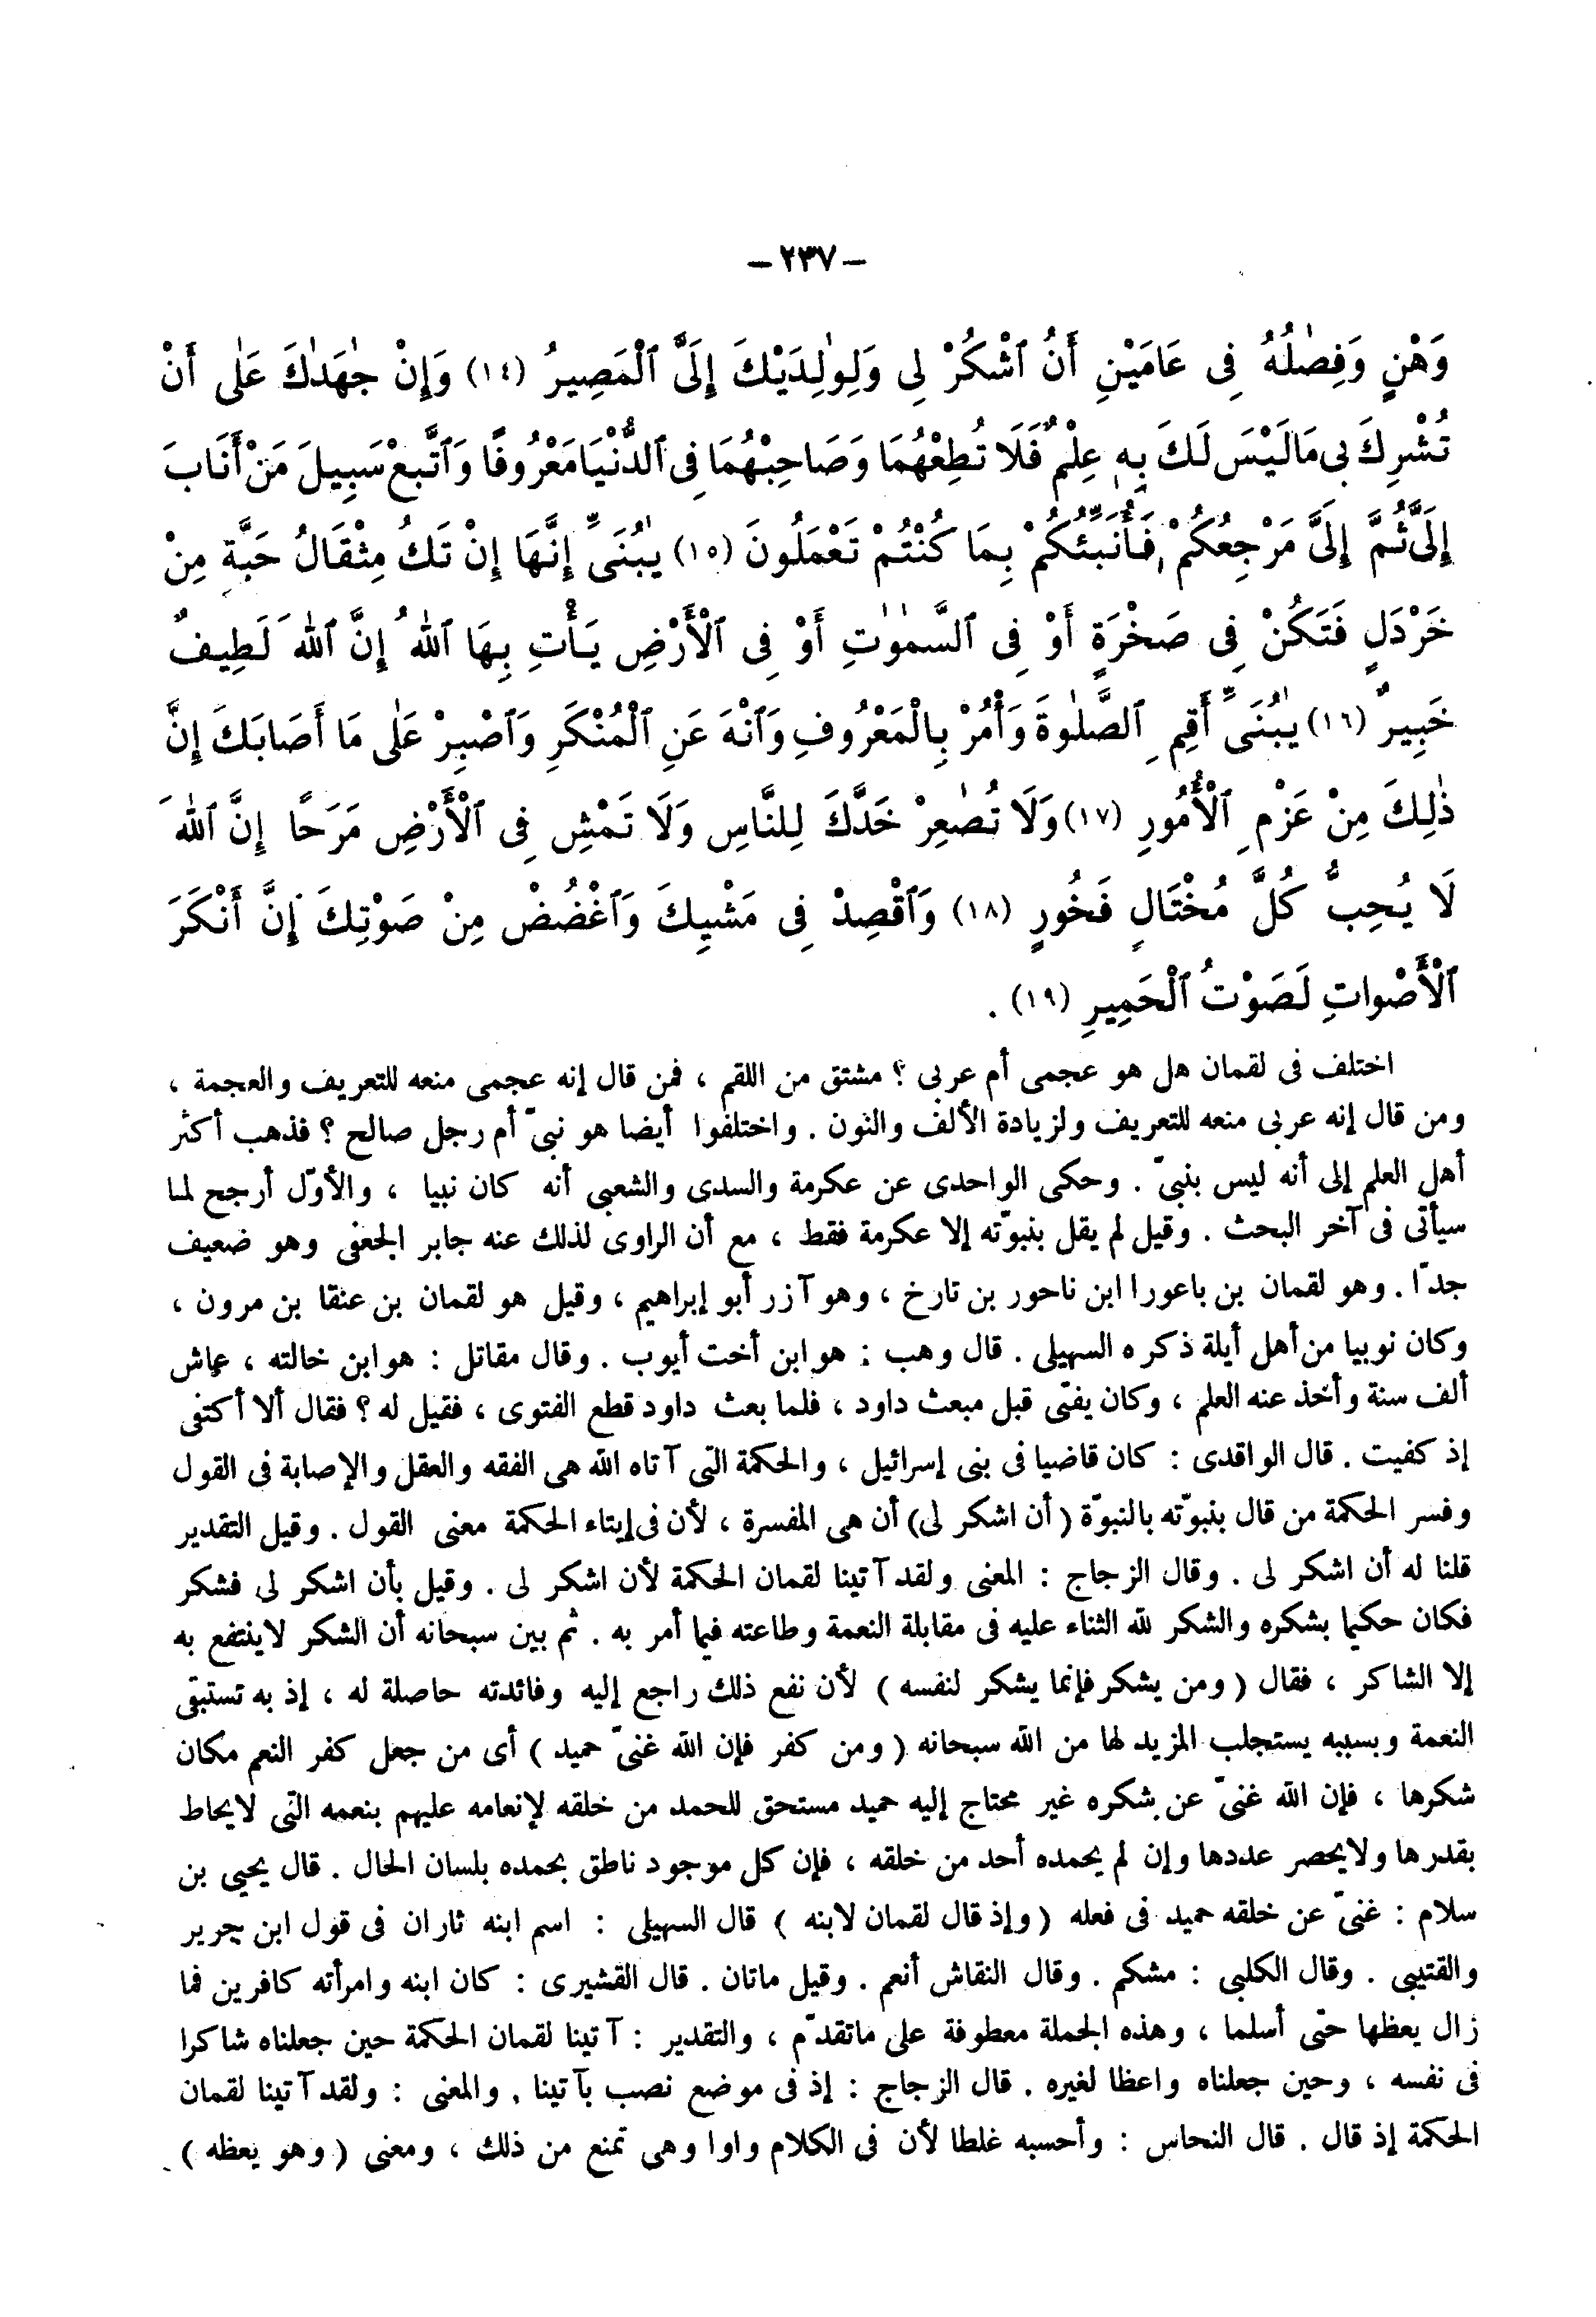 - ٢٣٧ -
وَهْنٍ وَفِصٰلُهُ فِى عَامَيْنِ أَنُ ٱشْكُرْ لِى وَلِوٰلِدَيْكَ إِلَىَّ ٱلْمَصِيرُ (١٤) وَإِنْ جٰهَدٰكَ عَلٰى أَنْ
تُشْرِكَ بِى مَا لَيْسَ لَكَ بِهِ عِلْمٌ فَلَا تُطِعْهُمَا وَصَاحِبْهُمَا فِى ٱلدُّنْيَا مَعْرُوفًا وَٱتَّبِعْ سَبِيلَ مَنْ أَنَابَ
إِلَىَّ ثُمَّ إِلَىَّ مَرْجِعُكُمْ فَأُنَبِّئُكُمْ بِمَا كُنْتُمْ تَعْمَلُونَ (١٥) يٰبُنَىِّ إِنَّهَا إِنْ تَكُ مِثْقَالُ حَبَّةٍ مِنْ
خَرْدَلٍ فَتَكُنْ فِى صَخْرَةٍ أَوْ فِى ٱلسَّمٰوٰتِ أَوْ فِى ٱلْأَرْضِ يَأْتِ بِهَا ٱللهُ إِنَّ ٱللهَ لَطِيفٌ
خَبِيرٌ (١٦) يٰبُنَىِّ أَقِمِ ٱلصَّلٰوةَ وَأْمُرْ بِالْمَعْرُوفِ وَٱنْهَ عَنِ ٱلْمُنْكَرِ وَٱصْبِرْ عَلٰى مَا أَصَابَكَ إِنَّ
ذٰلِكَ مِنْ عَزْمِ ٱلْأُمُورِ (١٧) وَلَا تُصٰعِرْ خَدَّكَ لِلنَّاسِ وَلَا تَمْشِ فِى ٱلْأَرْضِ مَرَحًا إِنَّ ٱللهَ
لَا يُحِبُّ كُلَّ مُخْتَالٍ فَخُورٍ (١٨) وَٱقْصِدْ فِى مَشْيِكَ وَٱغْضُضْ مِنْ صَوْتِكَ إِنَّ أَنْكَرَ
ٱلْأَصْواتِ لَصَوْتُ ٱلْحَمِيرِ (١٩) .
اختلف فى لقمان هل هو عجمى أم عربى ؟ مشتق من اللقم ، فمن قال إنه عجمى منعه للتعريف والعجمة ،
ومن قال إنه عربى منعه للتعريف ولزيادة الألف والنون . واختلفوا أيضا هو نبىّ أم رجل صالح ؟ فذهب أكثر
أهل العلم إلى أنه ليس بنبىّ . وحكى الواحدى عن عكرمة والسدى والشعبى أنه كان نبيا ، والأوّل أرجح لما
سيأتى فى آخر البحث . وقيل لم يقل بنبوّته إلا عكرمة فقط ، مع أن الراوى لذلك عنه جابر الجعفى وهو ضعيف
جدّا . وهو لقمان بن باعورا ابن ناحور بن تارخ ، وهو آزر أبو إبراهيم ، وقيل هو لقمان بن عنقا بن مرون ،
وكان نوبيا من أهل أيلة ذكره السهيلى . قال وهب : هو ابن أخت أيوب . وقال مقاتل : هو ابن خالته ، عاش
ألف سنة وأخذ عنه العلم ، وكان يفتى قبل مبعث داود ، فلما بعث داود قطع الفتوى ، فقيل له ؟ فقال ألا أكتفى
إذ كفيت . قال الواقدى : كان قاضيا فى بنى إسرائيل ، والحكمة التى آتاه الله هى الفقه والعقل والإصابة فى القول
وفسر الحكمة من قال بنبوّته بالنبوّة ( أن اشكر لى ) أن هى المفسرة ، لأن فى إيتاء الحكمة معنى القول . وقيل التقدير
قلنا له أن اشكر لى . وقال الزجاج : المعنى ولقد آتينا لقمان الحكمة لأن اشكر لى . وقيل بأن اشكر لى فشكر
فكان حكيما بشكره والشكر لله الثناء عليه فى مقابلة النعمة وطاعته فيما أمر به . ثم بين سبحانه أن الشكر لا ينتفع به
إلا الشاكر ، فقال ( ومن يشكر فإنما يشكر لنفسه ) لأن نفع ذلك راجع إليه وفائدته حاصلة له ، إذ به تستبقى
النعمة وبسببه يستجلب المزيد لها من الله سبحانه ( ومن كفر فإن الله غنىّ حميد ) أى من جعل كفر النعم مكان
شكرها ، فإن الله غنىّ عن شكره غير محتاج إليه حميد مستحق للحمد من خلقه لإنعامه عليهم بنعمه التى لا يحاط
بقدرها ولا يحصر عددها وإن لم يحمده أحد من خلقه ، فإن كل موجود ناطق بحمده بلسان الحال . قال يحيى بن
سلام : غنىّ عن خلقه حميد فى فعله ( وإذ قال لقمان لابنه ) قال السهيلى : اسم ابنه ثاران فى قول ابن جرير
والقتيبى . وقال الكلبى : مشكم . وقال النقاش أنعم . وقيل ماتان . قال القشيرى : كان ابنه وامرأته كافرين فما
زال يعظها حتى أسلما ، وهذه الجملة معطوفة على ما تقدّم ، والتقدير : آتينا لقمان الحكمة حين جعلناه شاكرا
فى نفسه ، وحين جعلناه واعظا لغيره . قال الزجاج : إذ فى موضع نصب بآتينا . والمعنى : ولقد آتينا لقمان
الحكمة إذ قال . قال النحاس : وأحسبه غلطا لأن فى الكلام واوا وهى تمنع من ذلك ، ومعنى ( وهو يعظه )